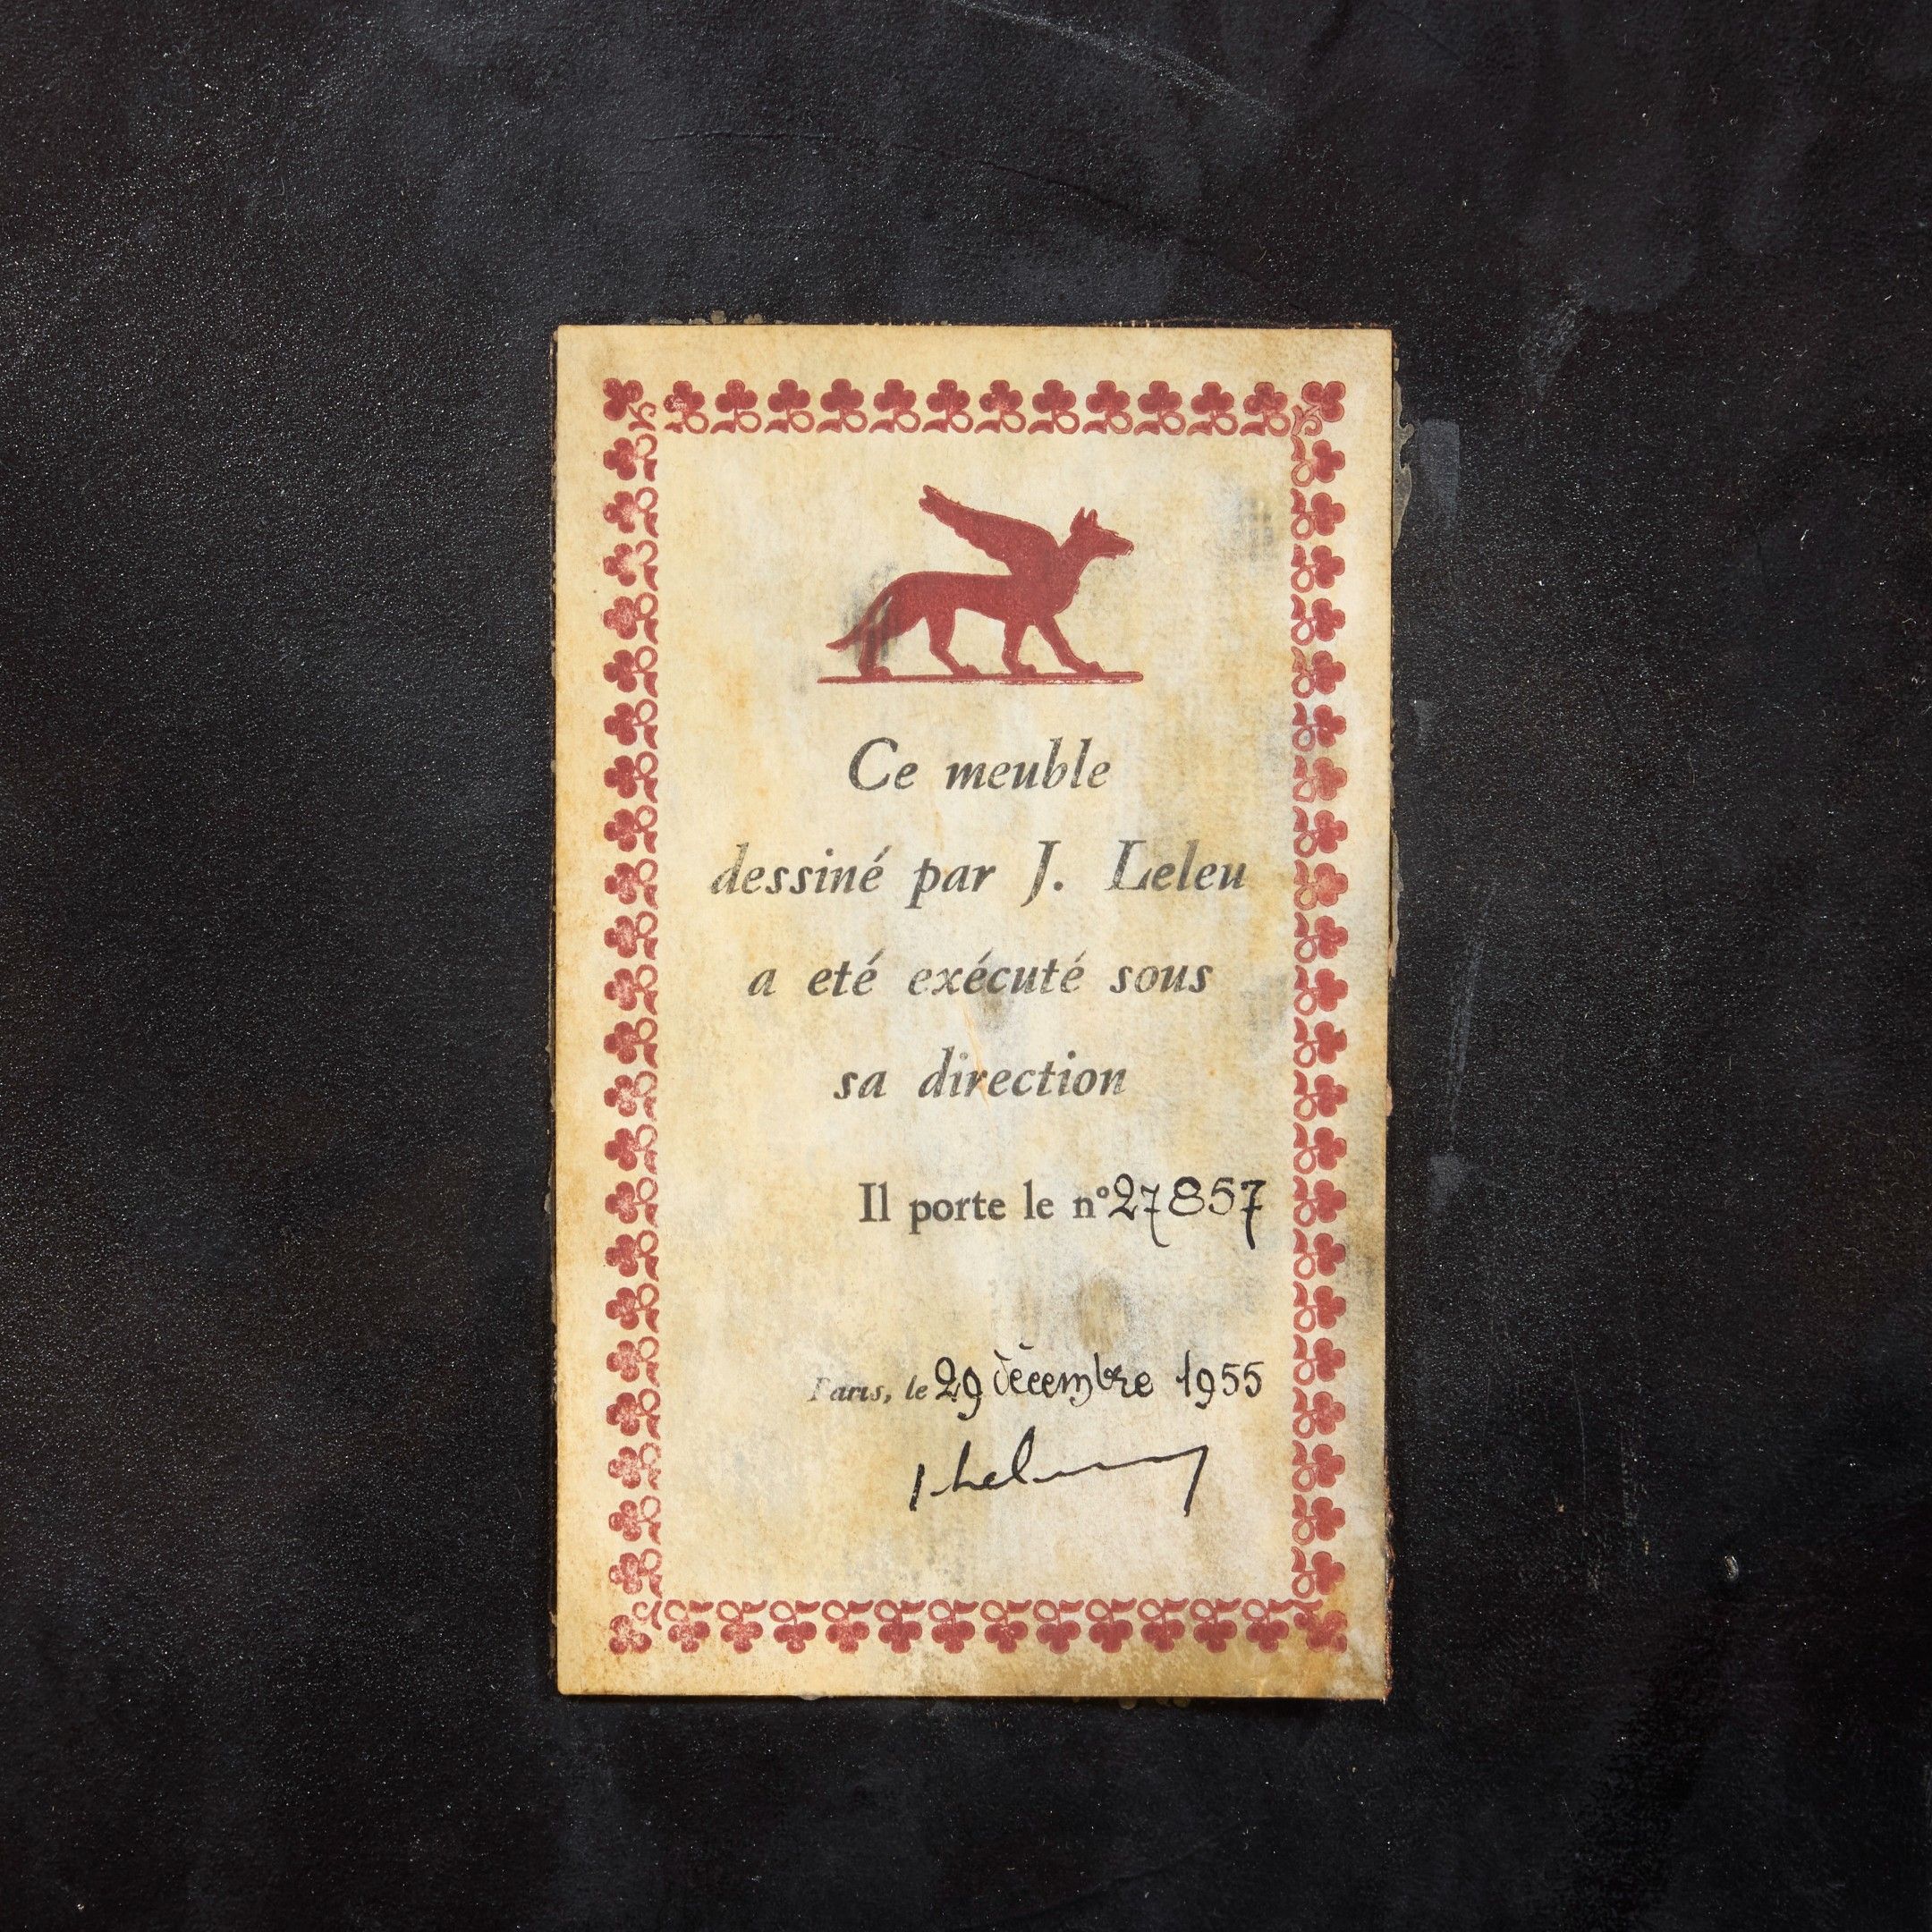 Ce meuble
dessiné par J. Leleu
a eté exécuté sous
sa direction
Il porte le n° 27857
Paris, le 29 décembre 1955
J Leleu